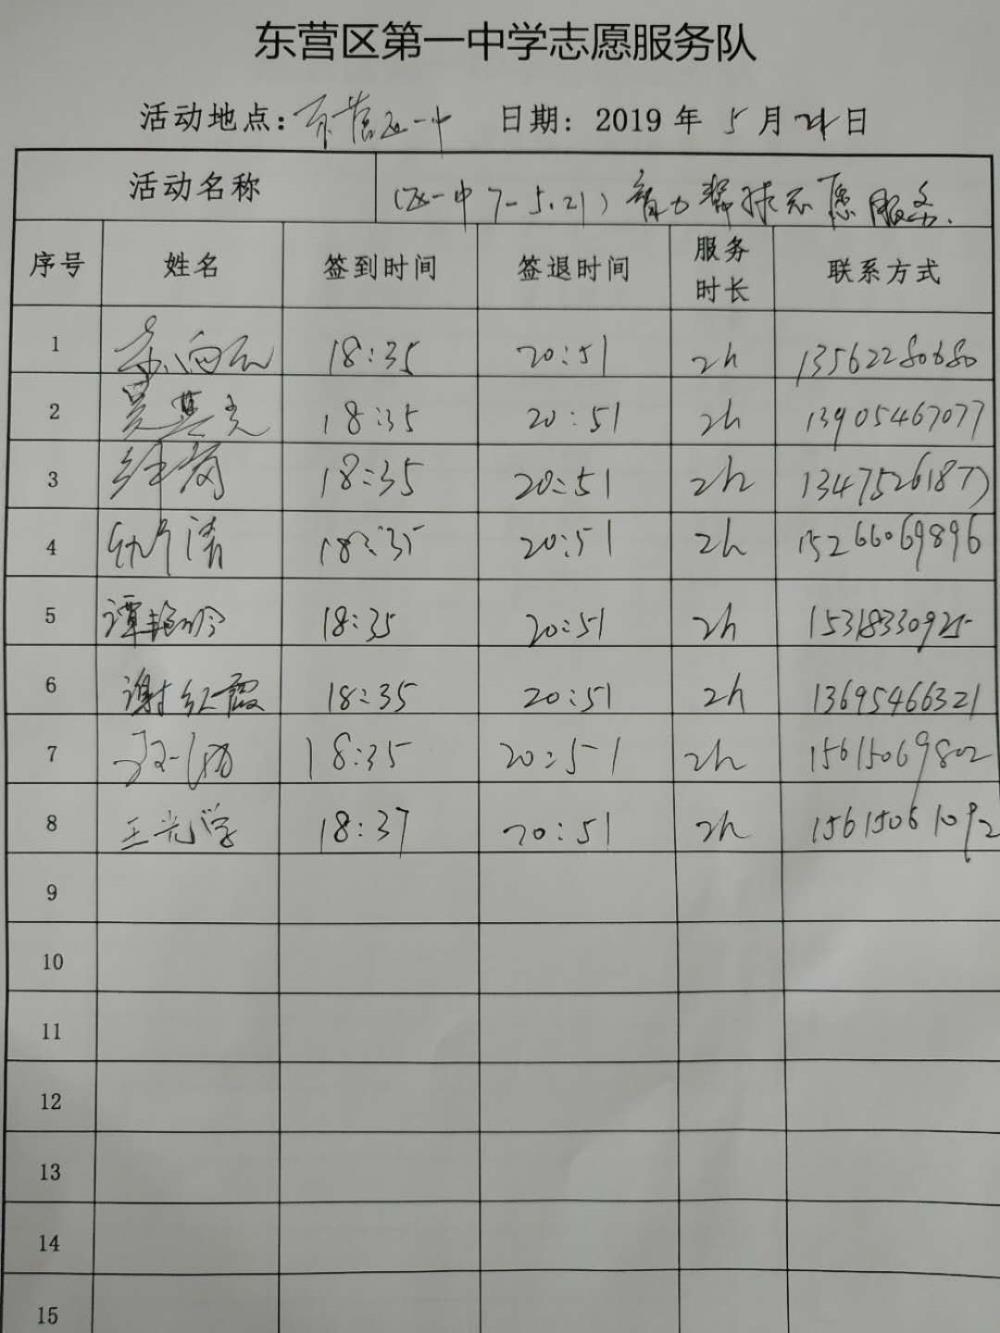 东营区第一中学志愿服务队
活动地点：东营区一中 日期：2019年5月21日
活动名称 （区一中7-5.21）志愿服务.
序号 姓名 签到时间 签退时间 服务时长 联系方式
1 18:35 20:51 2h 13562280680
2 18:35 20:51 2h 13905467077
3 18:35 20:51 2h 13475261877
4 18:35 20:51 2h 15266069896
5 谭艳玲 18:35 20:51 2h 15318330925
6 谢红霞 18:35 20:51 2h 13695466321
7 18:35 20:51 2h 15615069802
8 王光学 18:37 20:51 2h 15615061092
9
10
11
12
13
14
15